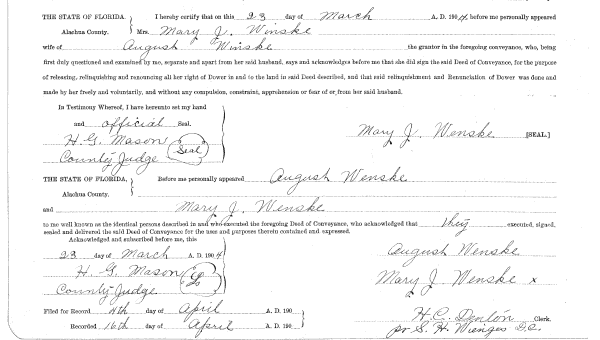 THE STATE OF FLORIDA, I hereby certify that on this 23 day of March A. D. 1904, before me personally appeared
Alachua County. Mrs. Mary J. Winske
wife of August Winske the grantor in the foregoing conveyance, who, being
first duly questioned and examined by me, separate and apart from her said husband, says and acknowledges before me that she did sign the said Deed of Conveyance, for the purpose
of releasing, relinquishing and renouncing all her right of Dower in and to the land in said Deed described, and that said relinquishment and Renunciation of Dower was done and
made by her freely and voluntarily, and without any compulsion, constraint, apprehension or fear of or from her said husband.
In Testimony Whereof, I have hereunto set my hand
and official Seal.
H. G. Mason Seal
County Judge
Mary J. Wenske [SEAL.]
THE STATE OF FLORIDA, Before me personally appeared August Wenske
Alachua County.
and Mary J. Wenske
to me well known as the identical persons described in and who executed the foregoing Deed of Conveyance, who acknowledged that they executed, signed,
sealed and delivered the said Deed of Conveyance for the uses and purposes therein contained and expressed.
Acknowledged and subscribed before me, this
23 day of March A. D. 1904
H. G. Mason
County Judge
August Wenske
Mary J. Wenske x
Filed for Record 4th day of April A. D. 190
Recorded 16th day of April A. D. 190
H. C. Denton Clerk.
pr S. H. Wienges D.C.